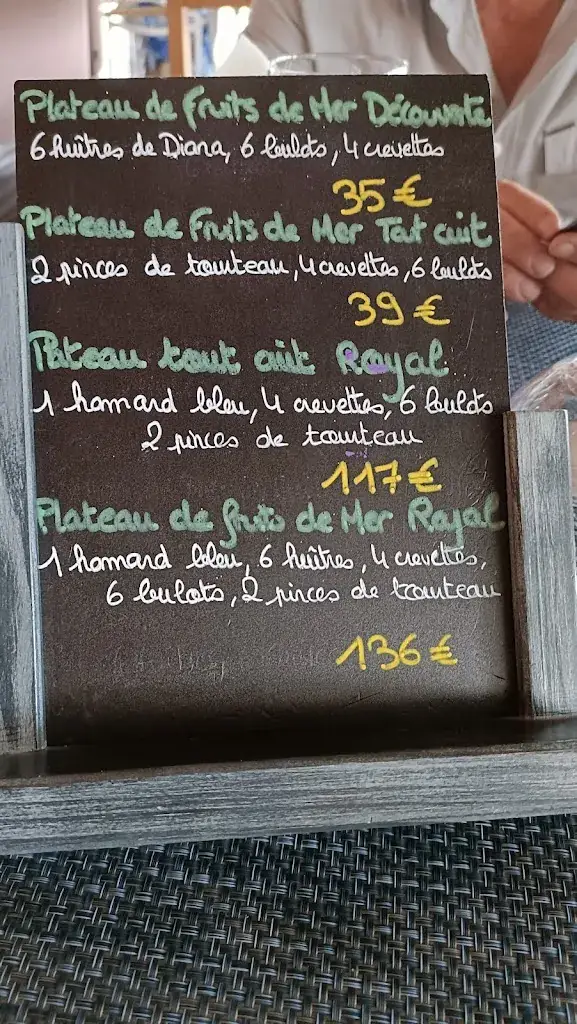 Plateau de fruits de Mer Découverte
6 huîtres de Diana, 6 bulots, 4 crevettes
35 €
Plateau de Fruits de Mer Tout cuit
2 pinces de tourteau, 4 crevettes, 6 bulots
39 €
Plateau tout cuit Royal
1 homard bleu, 4 crevettes, 6 bulots
2 pinces de tourteau
117 €
Plateau de fruits de Mer Royal
1 homard bleu, 6 huîtres, 4 crevettes,
6 bulots, 2 pinces de tourteau
136 €